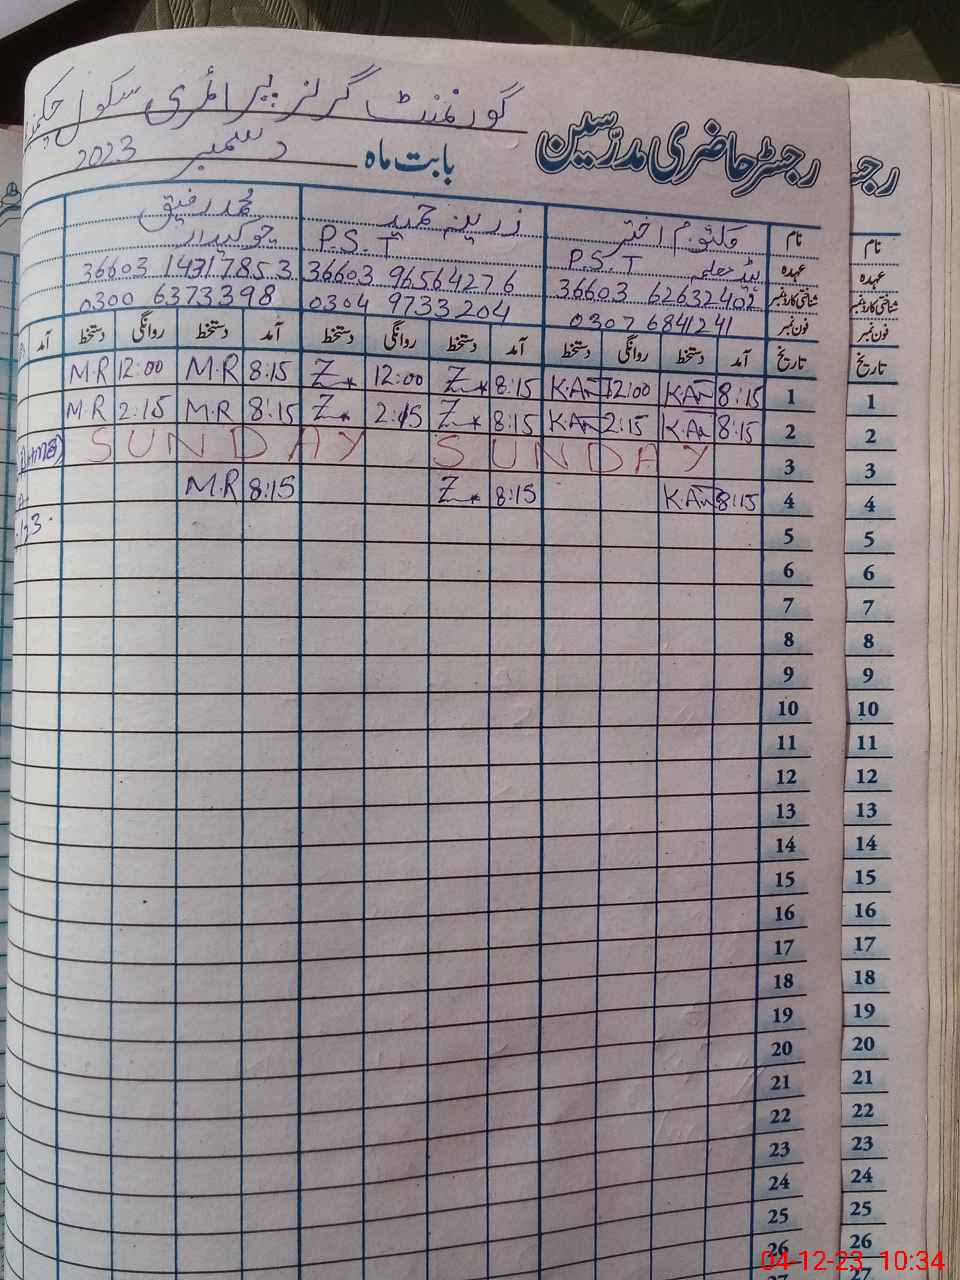 رجسٹر حاضری مدرسین گورنمنٹ گرلز پرائمری سکول
بابت ماہ دسمبر 2023
نام کلثوم اختر زرینہ حمید محمد رفیق
عہدہ ہیڈ معلمہ P.S.T P.S.T چوکیدار
شناختی کارڈ نمبر 36603 62632402 36603 96564276 36603 14317853
فون نمبر 0307 6841241 0304 9733204 0300 6373398
تاریخ آمد دستخط روانگی دستخط آمد دستخط روانگی دستخط آمد دستخط روانگی دستخط آمد
1 8:15 K.A 12:00 K.A 8:15 Z 12:00 Z 8:15 M.R 12:00 M.R
2 8:15 K.A 2:15 K.A 8:15 Z 2:15 Z 8:15 M.R 2:15 M.R
3 SUNDAY SUNDAY
4 8:15 K.A 8:15 Z 8:15 M.R
5
6
7
8
9
10
11
12
13
14
15
16
17
18
19
20
21
22
23
24
25
26
رجـ
نام
عہدہ
شناختی کارڈ نمبر
فون نمبر
تاریخ
1
2
3
4
5
6
7
8
9
10
11
12
13
14
15
16
17
18
19
20
21
22
23
24
25
26
27
04-12-23 10:34